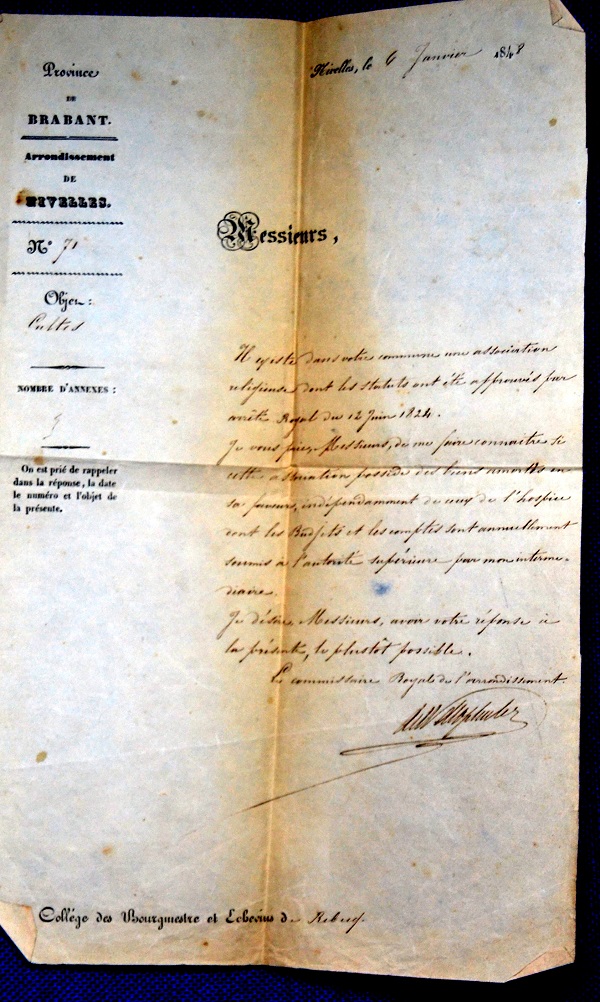 Province
DE
BRABANT.
Arrondissement
DE
NIVELLES.
N° 71
Objet:
Cultes
NOMBRE D'ANNEXES :
On est prié de rappeler
dans la réponse, la date
le numéro et l'objet de
la présente.
Nivelles, le 6 Janvier 1848
Messieurs,
Il existe dans votre commune une association
religieuse dont les statuts ont été approuvés par
arrêté Royal du 12 Juin 1824.
Je vous prie, Messieurs, de me faire connaitre si
cette association possède des biens amortis en
sa faveur, indépendamment de ceux de l'hospice
dont les Budjets et les comptes sont annuellement
soumis à l'autorité supérieure par mon interme-
diaire.
Je désire, Messieurs, avoir votre réponse à
la présente, le plustôt possible.
Le commissaire Royale de l'arrondissement.
Collége des Bourgmestre et Echevins de Rebecq